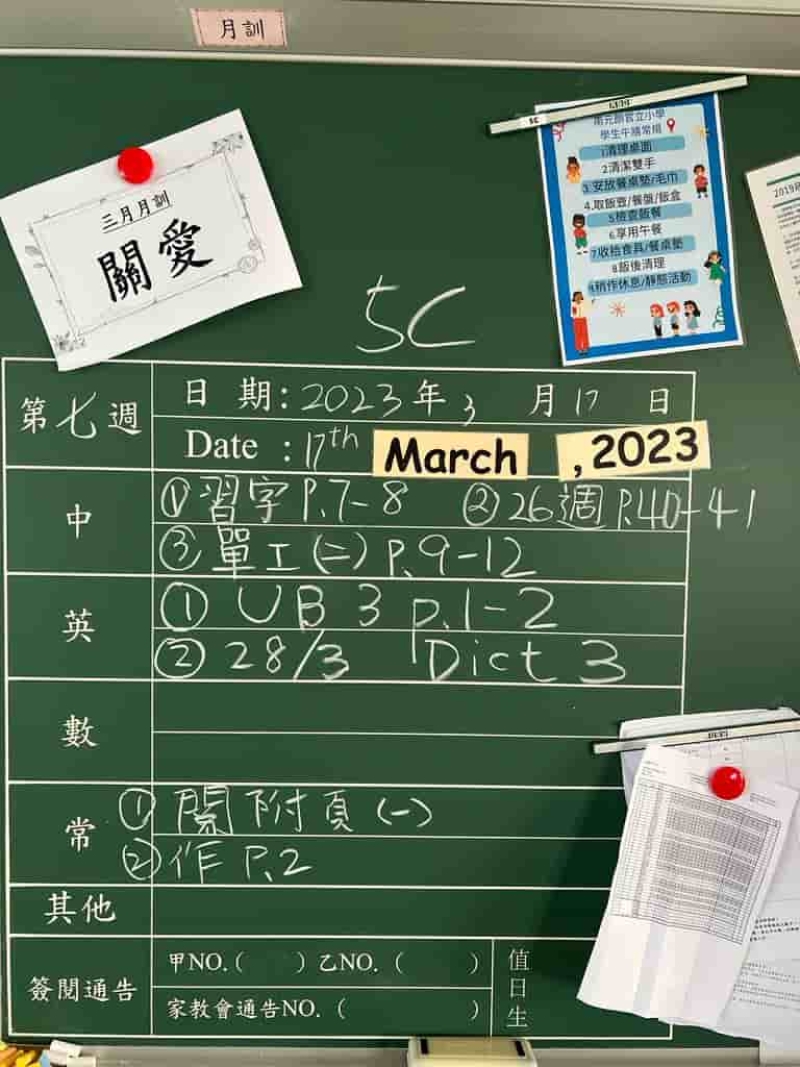 月訓
三月月訓
關愛
5C
學生午膳常規
1清理桌面
2清潔雙手
3.安放餐桌墊/毛巾
4.取飯壺/餐盤/飯盒
5檢查飯餐
6享用午餐
7收拾食具/餐桌墊
8飯後清理
9稍作休息/靜態活動
5C
2019
第七週
日 期:2023年3月17日
Date :17th March ,2023
中
①習字P.7-8 ②26週P.40-41
③單工(二)P.9-12
英
① UB 3 p.1-2
② 28/3 Dict 3
數
常
①閱附頁(一)
②作P.2
其他
簽閱通告
甲NO.( )乙NO.( )
家教會通告NO.( )
值日生